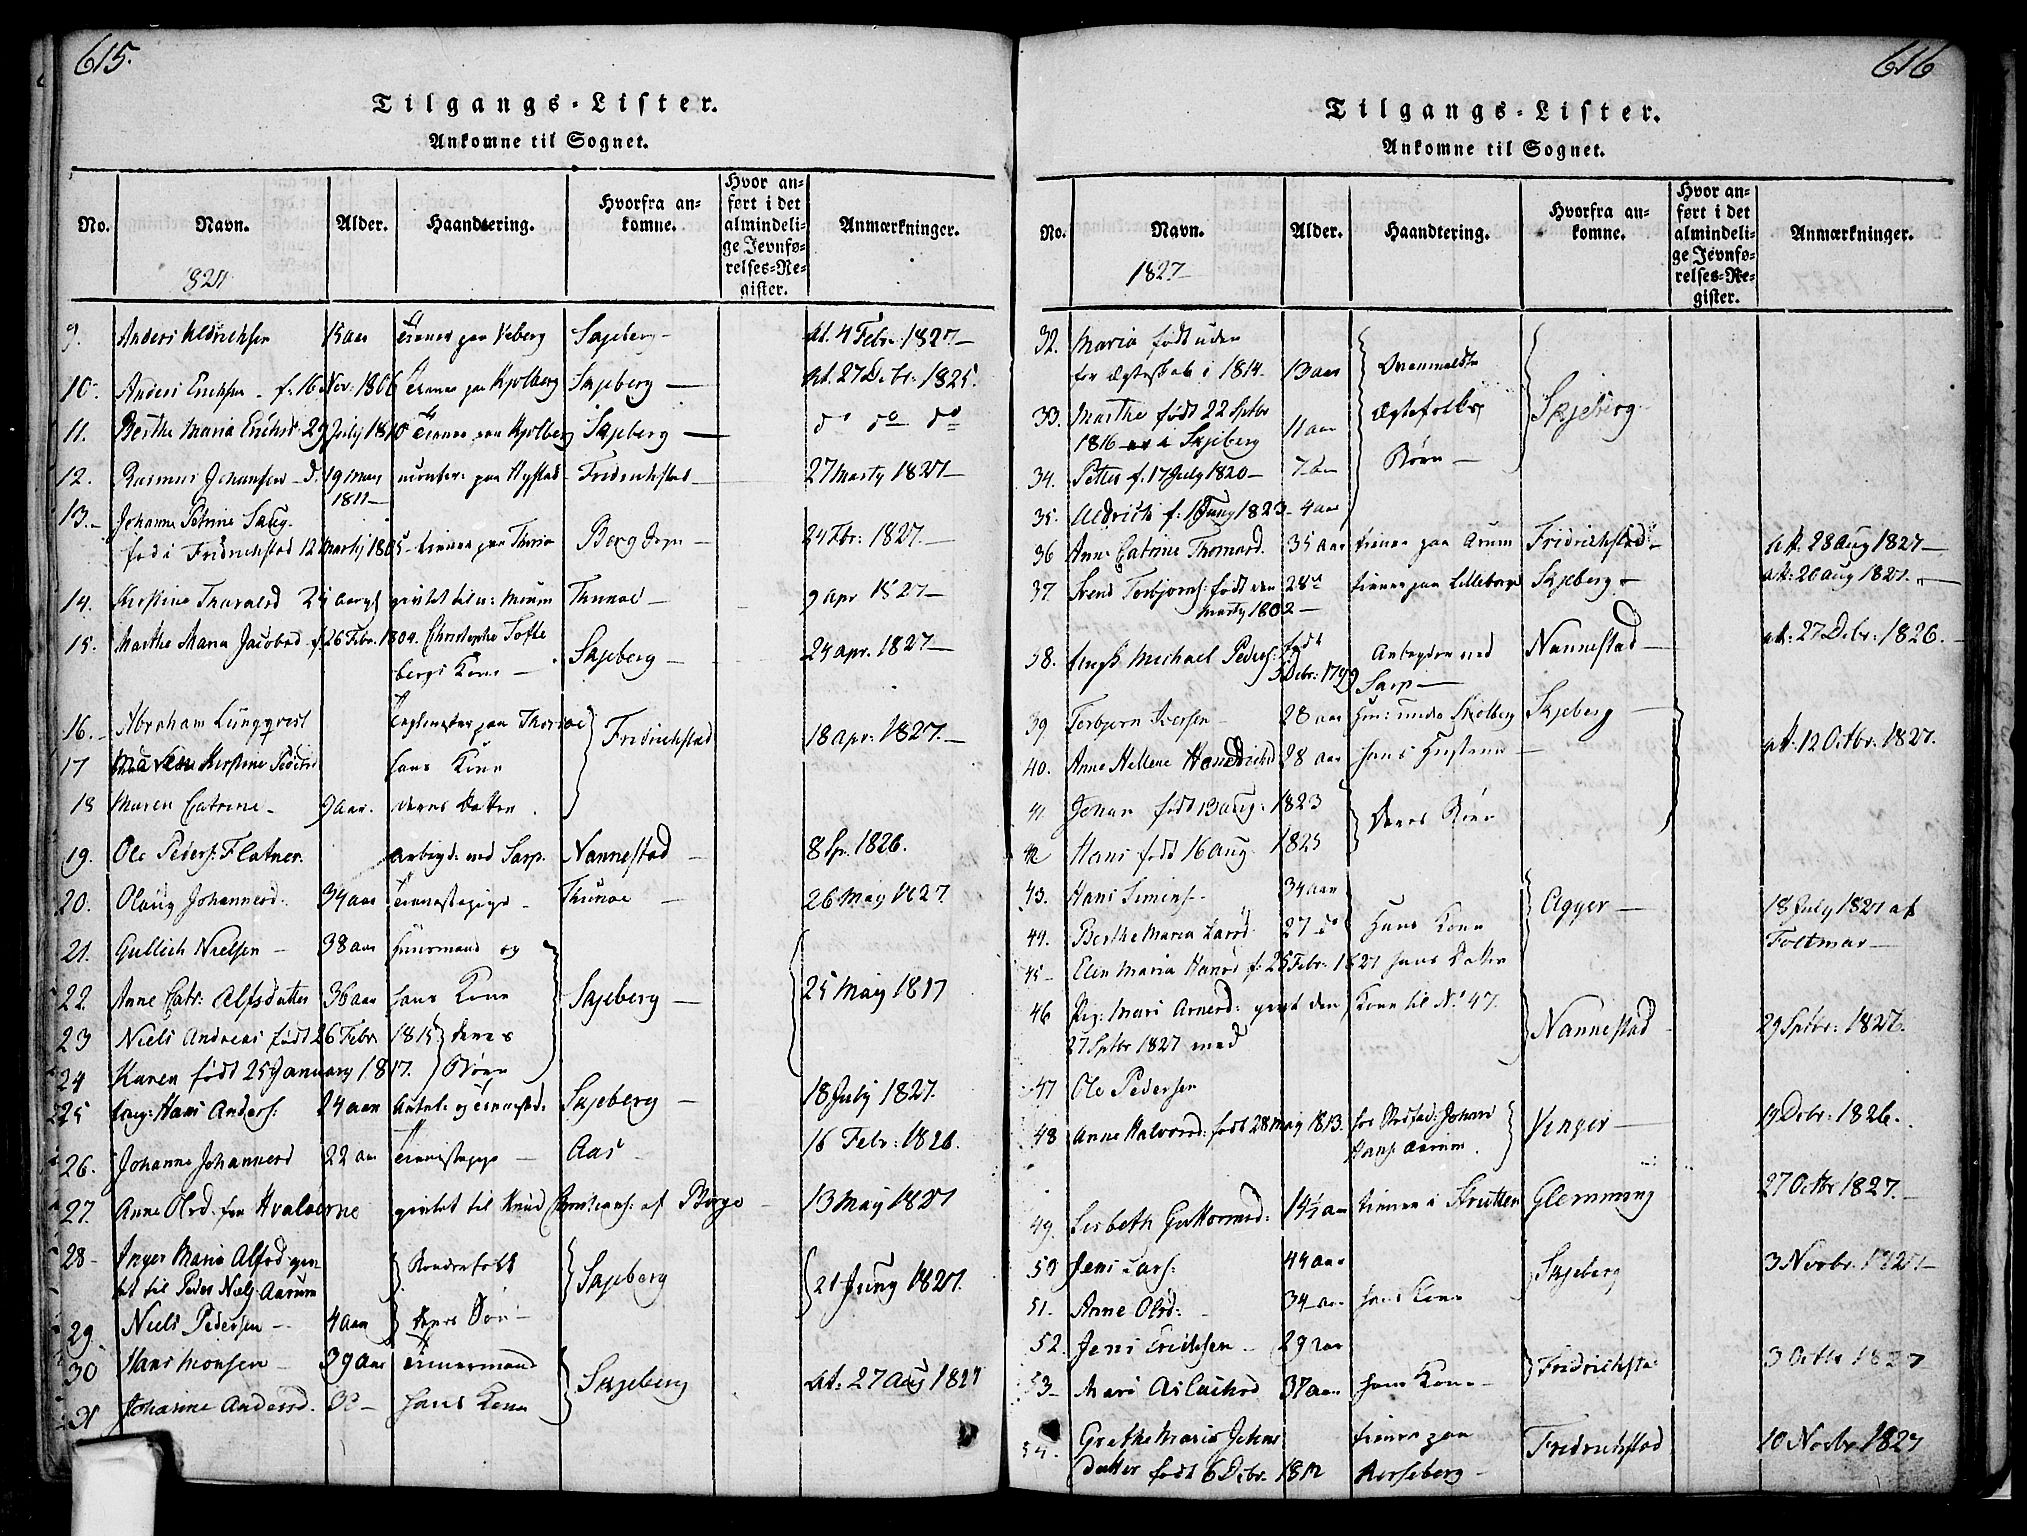 615.
Tilgangs-Lister.
Ankomne til Sognet.
No. Navn. Alder. Haandtering. Hvorfra ankomne. Hvor anført i det almindelige Jevnførelses-Register. Anmærkninger.
1827
9. Anders Aldrichsen 15 aar tienner paa Veberg Skjeberg – At. 4 Febr: 1827 –
10. Anders Erichsen – f. 16 Nov: 1806 tienner paa Kjolberg Skjeberg – At. 27 Debr: 1825.
11. Berthe Maria Erichsd. 29 July 1810 tienner paa Kjolberg Skjeberg – do do do
12. Rasmus Johansen – d. 19 May paa Nystad – Fridrichstad – 27 Marty 1827 –
1811 –
13. – Johanne Petrine Saug.
fød i Fridrichstad 12 Marty 1805 – tienner paa Thorsøe Borg 24 Fbr: 1827. –
14. Kirstine Thorvalsd 24 aar giftet til Thunøe – 9 Apr 1827 –
15. Marthe Maria Jacobsd. f. 26 Febr. 1804. Christopher Tofte
bergs Kone – Skjeberg – 24 apr. 1827 –
16. – Abraham Lungqvist paa Thorsøe Fridrichstad 18 apr: 1827. –
17 Kirstine hans Kone
18 Maren Catrine – 9 aar. deres Datter.
19. Ole Peders: Flatner. arbeyd: ved Sarp. Nannestad – 8 1826.
20. Olaug Johannesd. 34 aar tiennestepige – Thunøe – 26 May 1827.
21. Gullich Nielsen – 38 aar Huusmand og
22. Anne Catr: Alfsdatter 36 aar hans Kone Skjeberg – 25 May 1827
23 Niels Andreas født 26 Febr 1815 deres
24 Karen født 25 January 1817. Børn
25 Ung: Hans Anders: 24 aar Skjeberg – 18 July 1827.
26. Johanne Johannesd 22 aar tiennistepige – Aas – 16 Febr: 1826.
27. Anne Olsd. fra Hvaløerne giftet til Knud Christians: af Borge – 13 May 1827
28 – Inger Maria Alfsd. givt
til Peder Niels: Aarum Skjeberg 21 Juny 1827.
29. Niels Pedersen – 4 aar deres Søn –
30 Hans Monsen – 39 aar Timmermand
31 Johanne Andersd. 30 – hans Kone Skjeberg At: 27 Aug 1827
616
Tilgangs-Lister.
Ankomne til Sognet.
No. Navn. Alder. Haandtering. Hvorfra ankomne. Hvor anført i det almindelige Jevnførelses-Register. Anmærkninger.
1827
32. Maria født uden
for Ægteskab i 1814. 13 aar Ovenmeldte
33. Marthe født 22 Sptbr Ægtefolks Skjeberg.
1816 Skjeberg 11 aar
34. Petter f. 17 July 1820 – 7 aar Børn –
35. Aldrich f: 1 Juny 1823 – 4 aar
36 Anne Catrine Thomasd. 35 aar tienner paa Arum Fridrichstad – at. 28 Aug 1827 –
37. Svend Torbjorns: født den 28 tienner paa Lilleborge Skjeberg – at: 20 Aug 1827. –
Marty 1802 –
38. Michael Peders: født Arbeyder ved Nannestad – at: 27 Debr: 1826. –
Debr: 1799 Sarp –
39 Torbjorn Iversen – 28 aar Huus: under Skolberg Skjeberg –
40. Anne Hellene 28 aar hans Hustrue – at. 12 Octbr. 1827.
41 Johan født 13 aug: 1823 deres Børn
42 Hans født 16 aug. 1825
43. Hans Simens: – 34 aar
44. Berthe Maria Larsd 27 – do Hans Kone Agger – 18 July 1827 at
45 – Elen Maria Hansd f. 25 Febr. 1827 hans Datter Foltmar –
46 Pig: Mari Arnesd: givt den Kone til No. 47.
27 Sptbr 1827 med Nannestad 29 Sptbr: 1826.
47 Ole Pedersen
48 Anne Halvorsd: født 28 May 1813. hos Johan Venger – 19 Debr: 1826.
Hans: Aarum.
49. Lisbeth Guttormsd: 14½ aar tienner i Glemming 27 Octbr 1827. –
50 Jens Lars: 44 aar Skjeberg 3 Novbr. 1827 –
51. Anne Olsd: – 34 aar hans Kone
52. Jens Erichsen – 29 aar
53 – Mari Aslachsd 37 aar hans Kone – Fridrichsta: 3 Octbr 1827
54. Grethe Maria Johans
datter født 6 Debr. 1812 tienner paa Fredrichstad 10 Novbr 1827